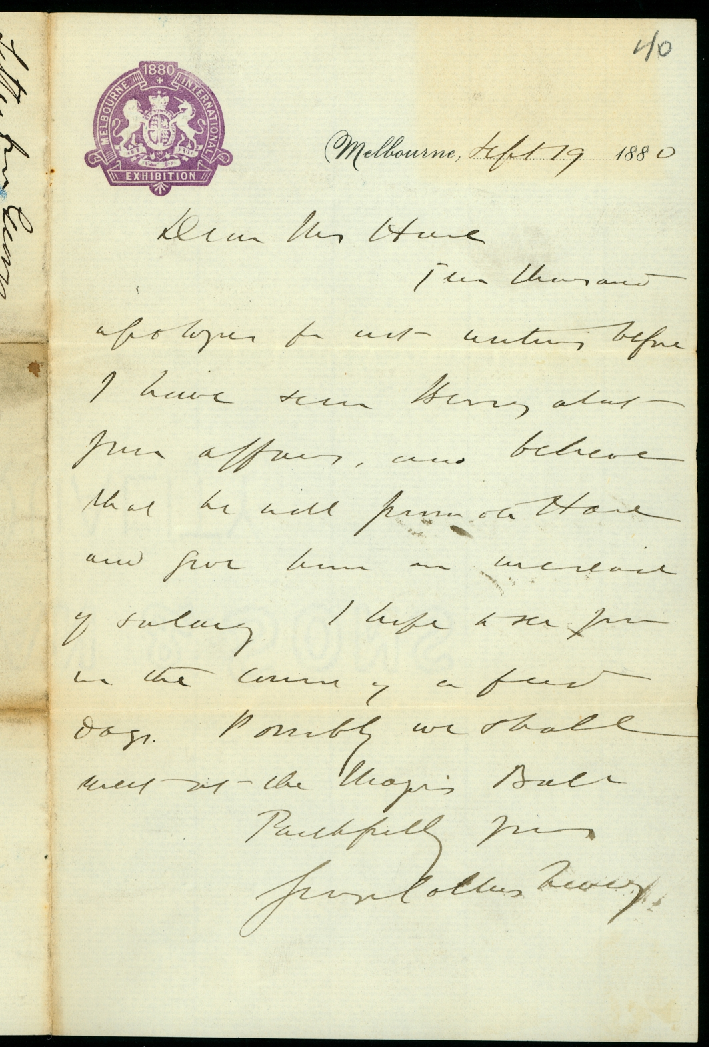 40
1880
MELBOURNE INTERNATIONAL
EXHIBITION
Melbourne, Sept 19 1880
Dear Mrs Hare
Ten thousand
apologies for not writing before
I have seen Henry about
your affairs, and believe
that he will promote Hare
and give him an increase
of salary I hope to see you
in the course of a few
days. Possibly we shall
meet at the Mayor's Ball
Faithfully yours
George Collins Levey